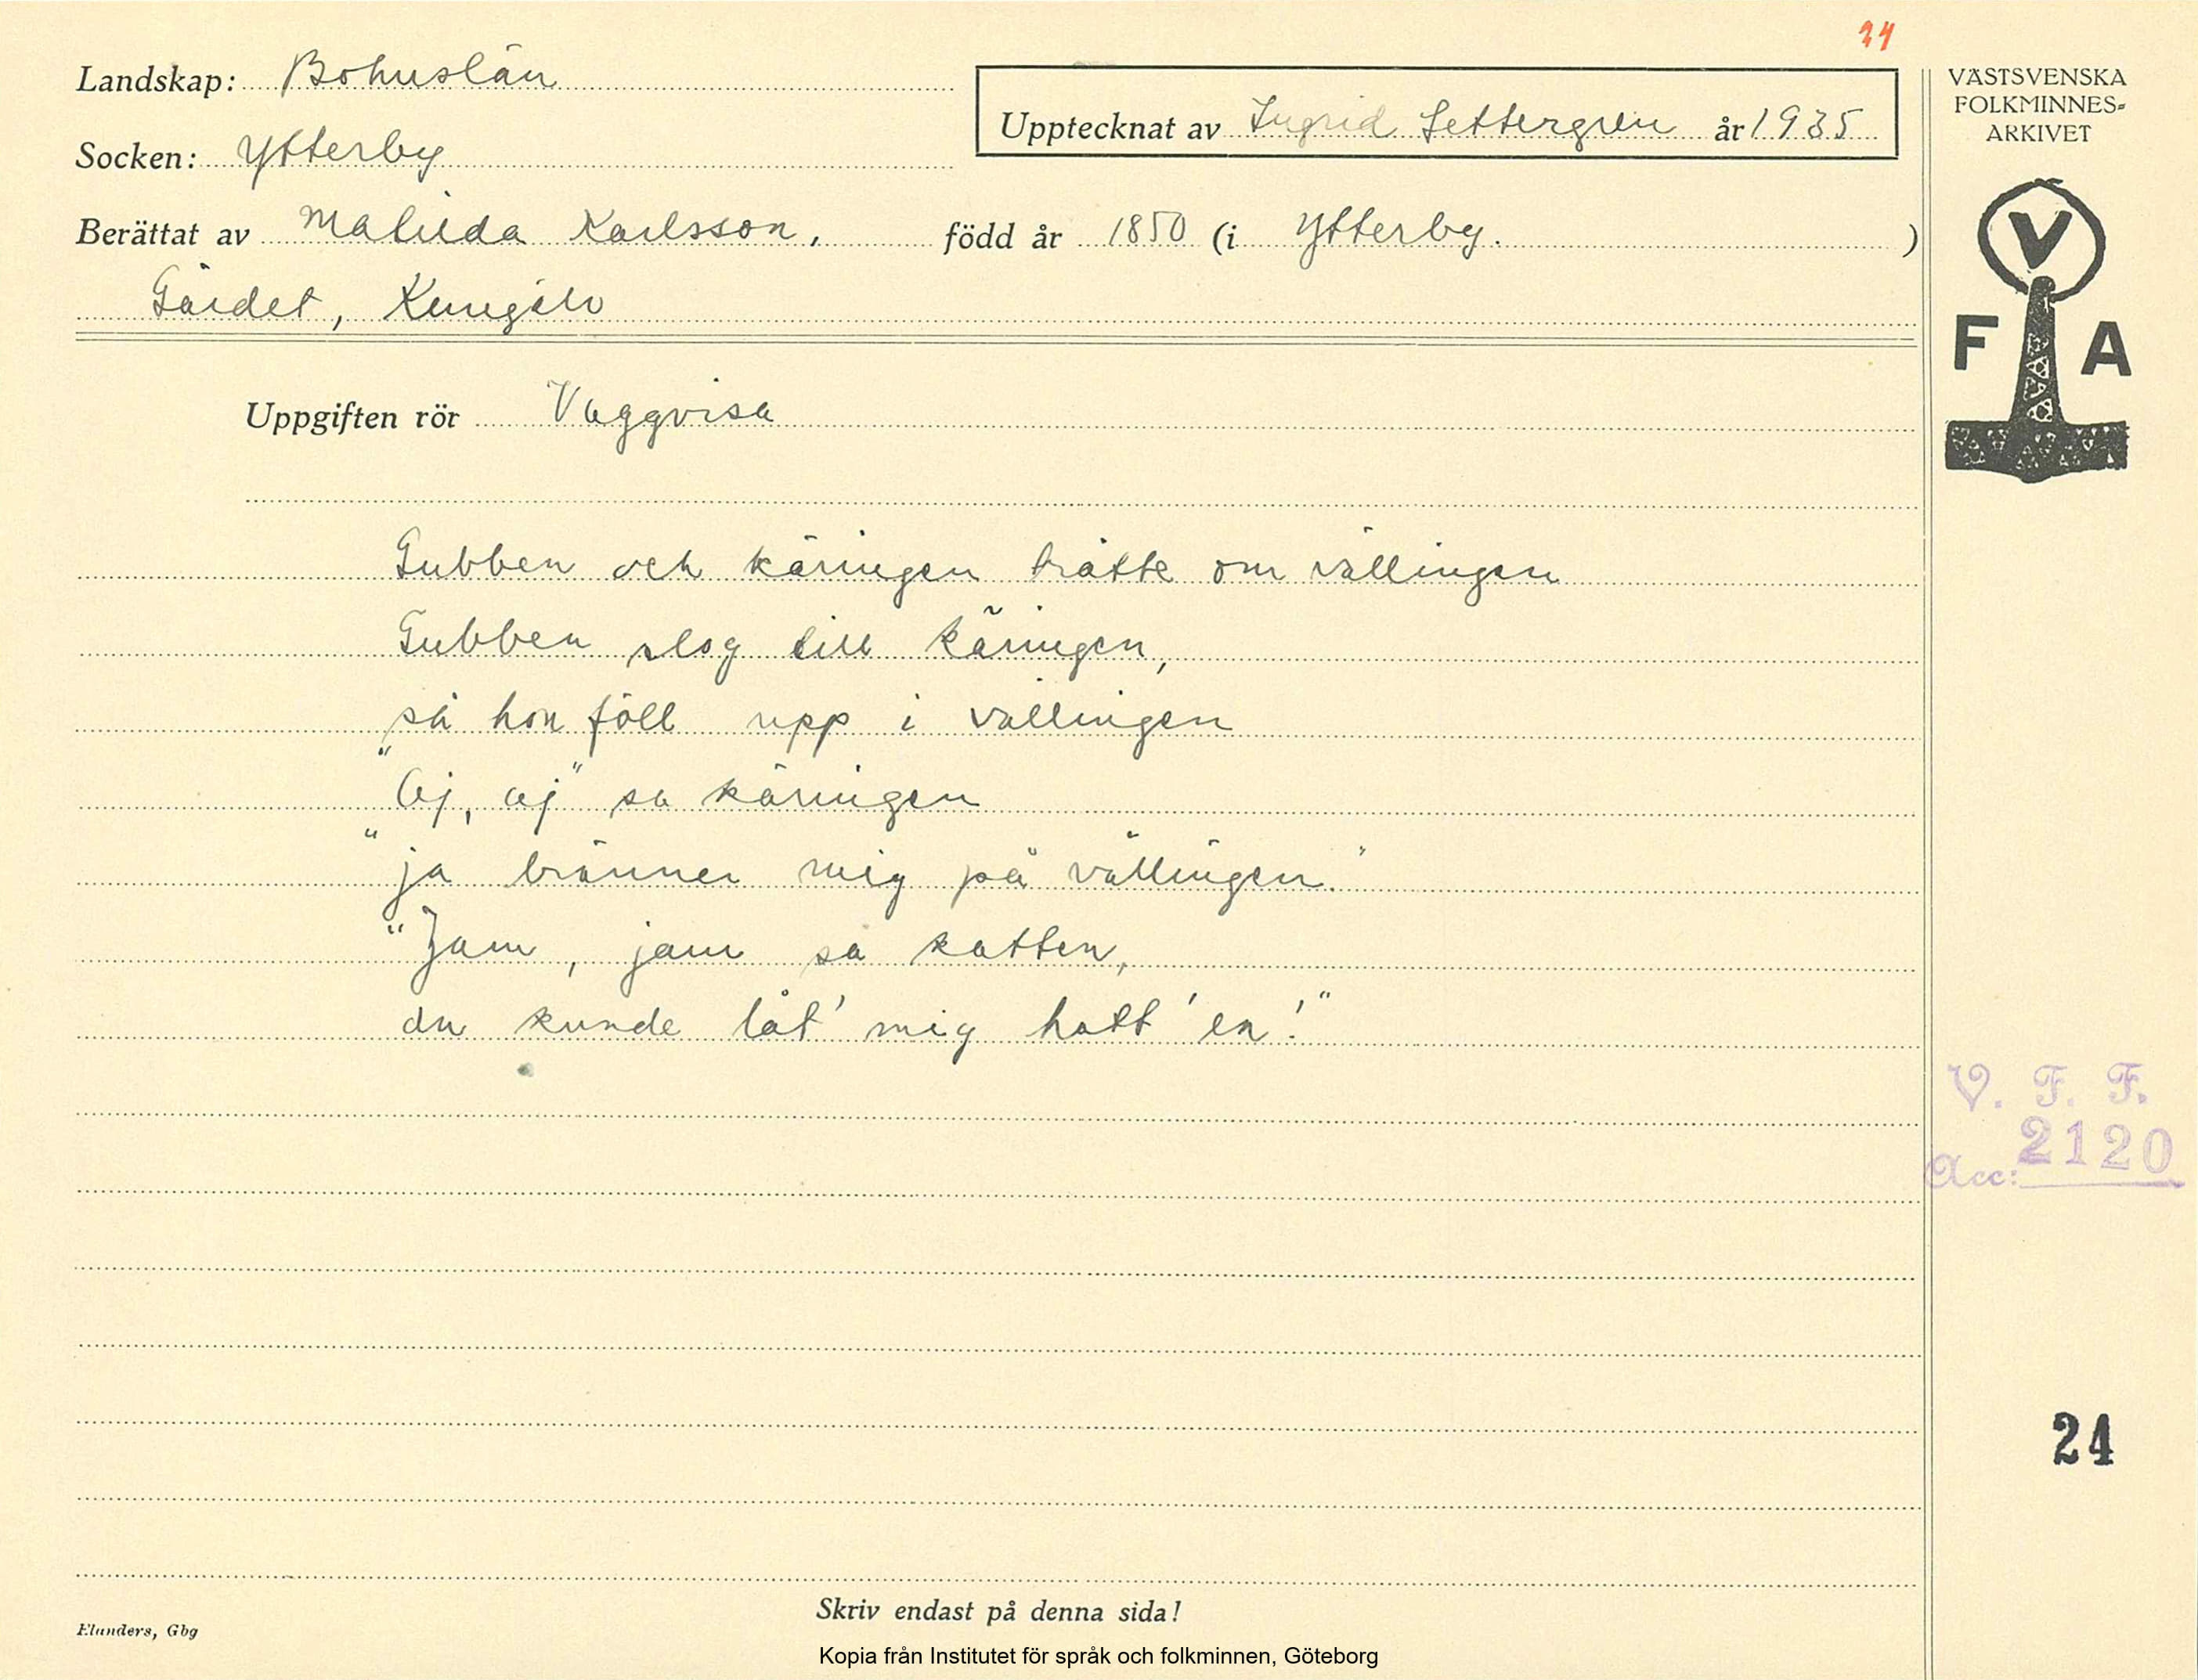 34
Landskap: Bohuslän
Upptecknat av Ingrid Settergren år 1935
Socken: Ytterby
Berättat av Matilda Karlsson, född år 1850 (i Ytterby. )
Gärdet, Kungälv
VÄSTSVENSKA
FOLKMINNES-
ARKIVET
V
F A
Uppgiften rör Vaggvisa
Gubben och käringen trätte om vällingen
Gubben slog till käringen,
så hon föll upp i vällingen
"Aj, aj" sa käringen
"ja bränner mig på vällingen."
"Jam, jam sa katten,
du kunde låt' mig hatt 'en!"
V. F. F.
Acc: 2120
24
Skriv endast på denna sida!
Elanders, Gbg
Kopia från Institutet för språk och folkminnen, Göteborg